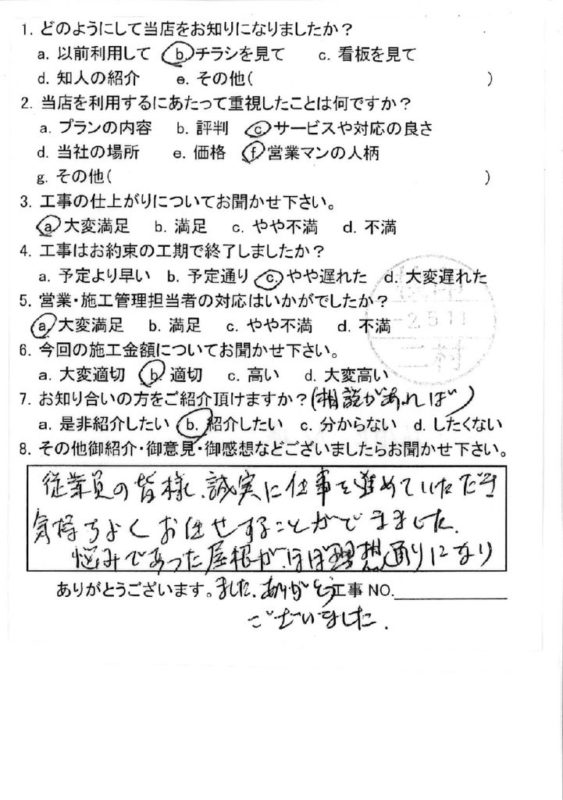 1. どのようにして当店をお知りになりましたか？
a. 以前利用して b. チラシを見て c. 看板を見て
d. 知人の紹介 e. その他( )
2. 当店を利用するにあたって重視したことは何ですか？
a. プランの内容 b. 評判 c. サービスや対応の良さ
d. 当社の場所 e. 価格 f. 営業マンの人柄
g. その他( )
3. 工事の仕上がりについてお聞かせ下さい。
a. 大変満足 b. 満足 c. やや不満 d. 不満
4. 工事はお約束の工期で終了しましたか？
a. 予定より早い b. 予定通り c. やや遅れた d. 大変遅れた
5. 営業・施工管理担当者の対応はいかがでしたか？
-2.5.11
a. 大変満足 b. 満足 c. やや不満 d. 不満
二村
6. 今回の施工金額についてお聞かせ下さい。
a. 大変適切 b. 適切 c. 高い d. 大変高い
7. お知り合いの方をご紹介頂けますか？(相談があれば)
a. 是非紹介したい b. 紹介したい c. 分からない d. したくない
8. その他御紹介・御意見・御感想などございましたらお聞かせ下さい。
従業員の皆様、誠実に仕事を進めていただき
気持ちよくお任せすることができました。
悩みであった屋根が、ほぼ理想通りになり
ありがとうございます。ました。ありがとう工事 NO.
ございました。